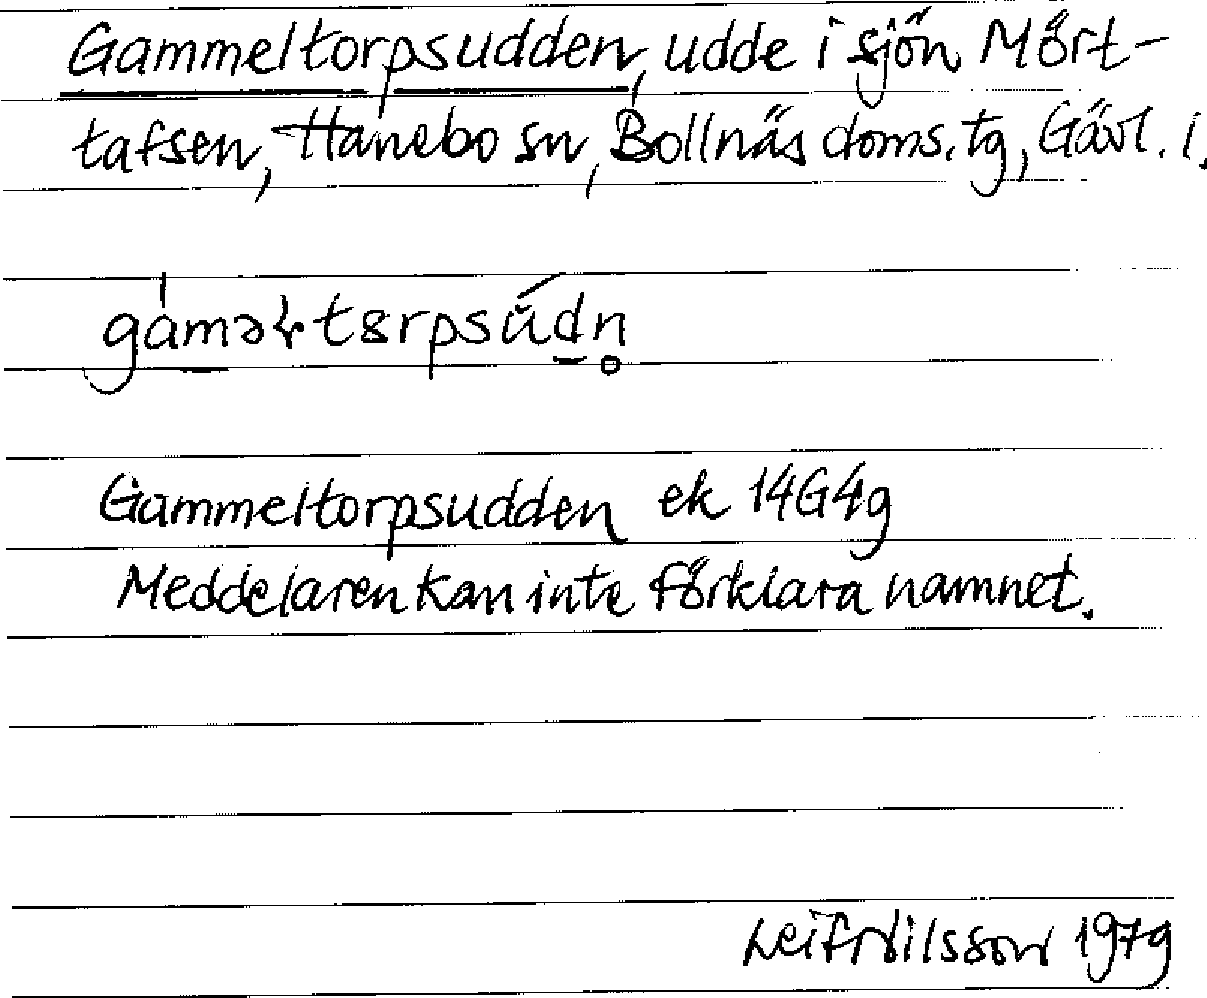 Gammeltorpsudden, udde i sjön Mört-
tafsen, Hanebo sn, Bollnäs doms. tg, Gävl. l.
gáməɫtɞrpsúdn̥
Gammeltorpsudden ek 14G4g
Meddelaren kan inte förklara namnet.
Leif Nilsson 1979